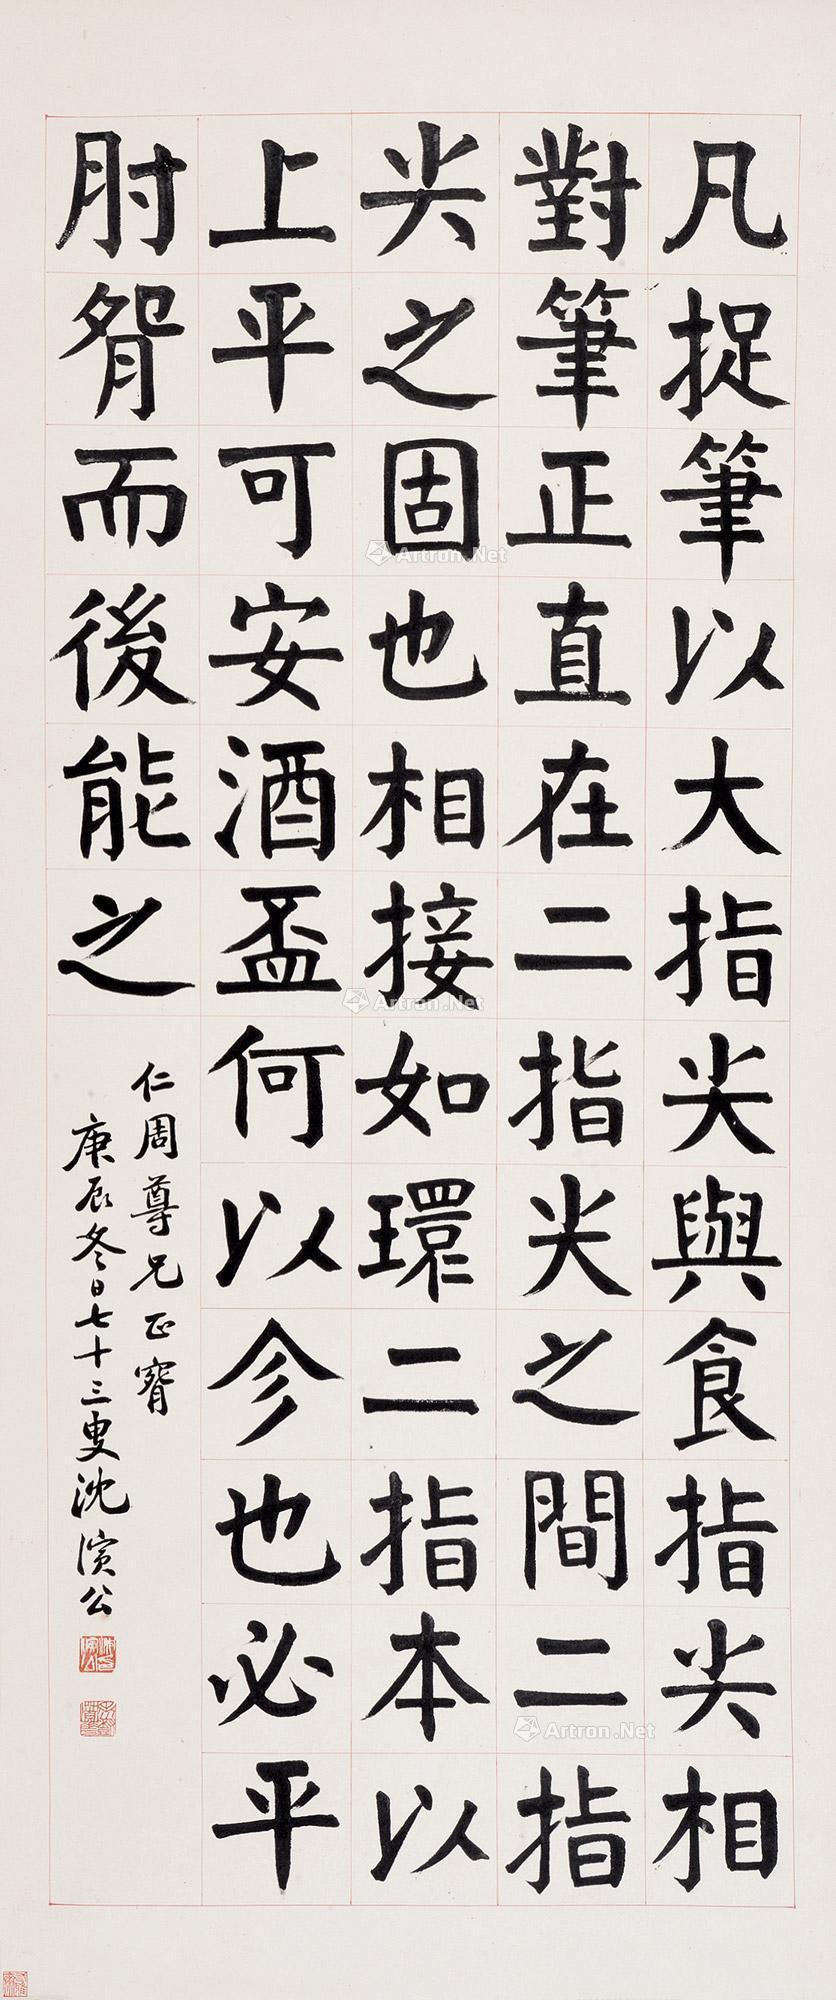 凡捉筆以大指尖與食指尖相
對筆正直在二指尖之間二指
尖之固也相接如環二指本以
上平可安酒盃何以參也必平
肘臂而後能之
仁周尊兄正審
庚辰冬日七十三叟沈演公
Artron.Net
Artron.Net
Artron.Net